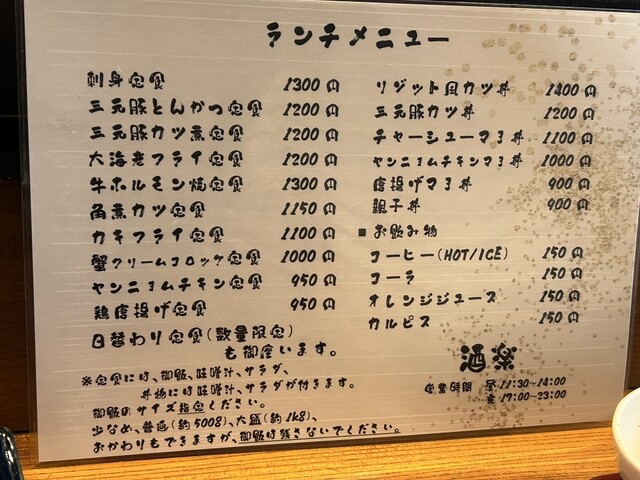 ランチメニュー
刺身定食 1300円
三元豚とんかつ定食 1200円
三元豚カツ煮定食 1200円
大海老フライ定食 1200円
牛ホルモン焼定食 1300円
角煮カツ定食 1150円
カキフライ定食 1100円
蟹クリームコロッケ定食 1000円
ヤンニョムチキン定食 950円
鶏唐揚げ定食 950円
日替わり定食(数量限定)
も御座います。
※定食には、御飯、味噌汁、サラダ、
丼物には味噌汁、サラダが付きます。
御飯のサイズ指定ください。
少なめ、普通(約500g)、大盛(約1kg)、
おかわりもできますが、御飯は残さないでください。
リゾット風カツ丼 1400円
三元豚カツ丼 1200円
チャーシューマヨ丼 1100円
ヤンニョムチキンマヨ丼 1000円
唐揚げマヨ丼 900円
親子丼 900円
■お飲み物
コーヒー(HOT/ICE) 150円
コーラ 150円
オレンジジュース 150円
カルピス 150円
酒楽
営業時間 昼11:30~14:00
夜17:00~23:00